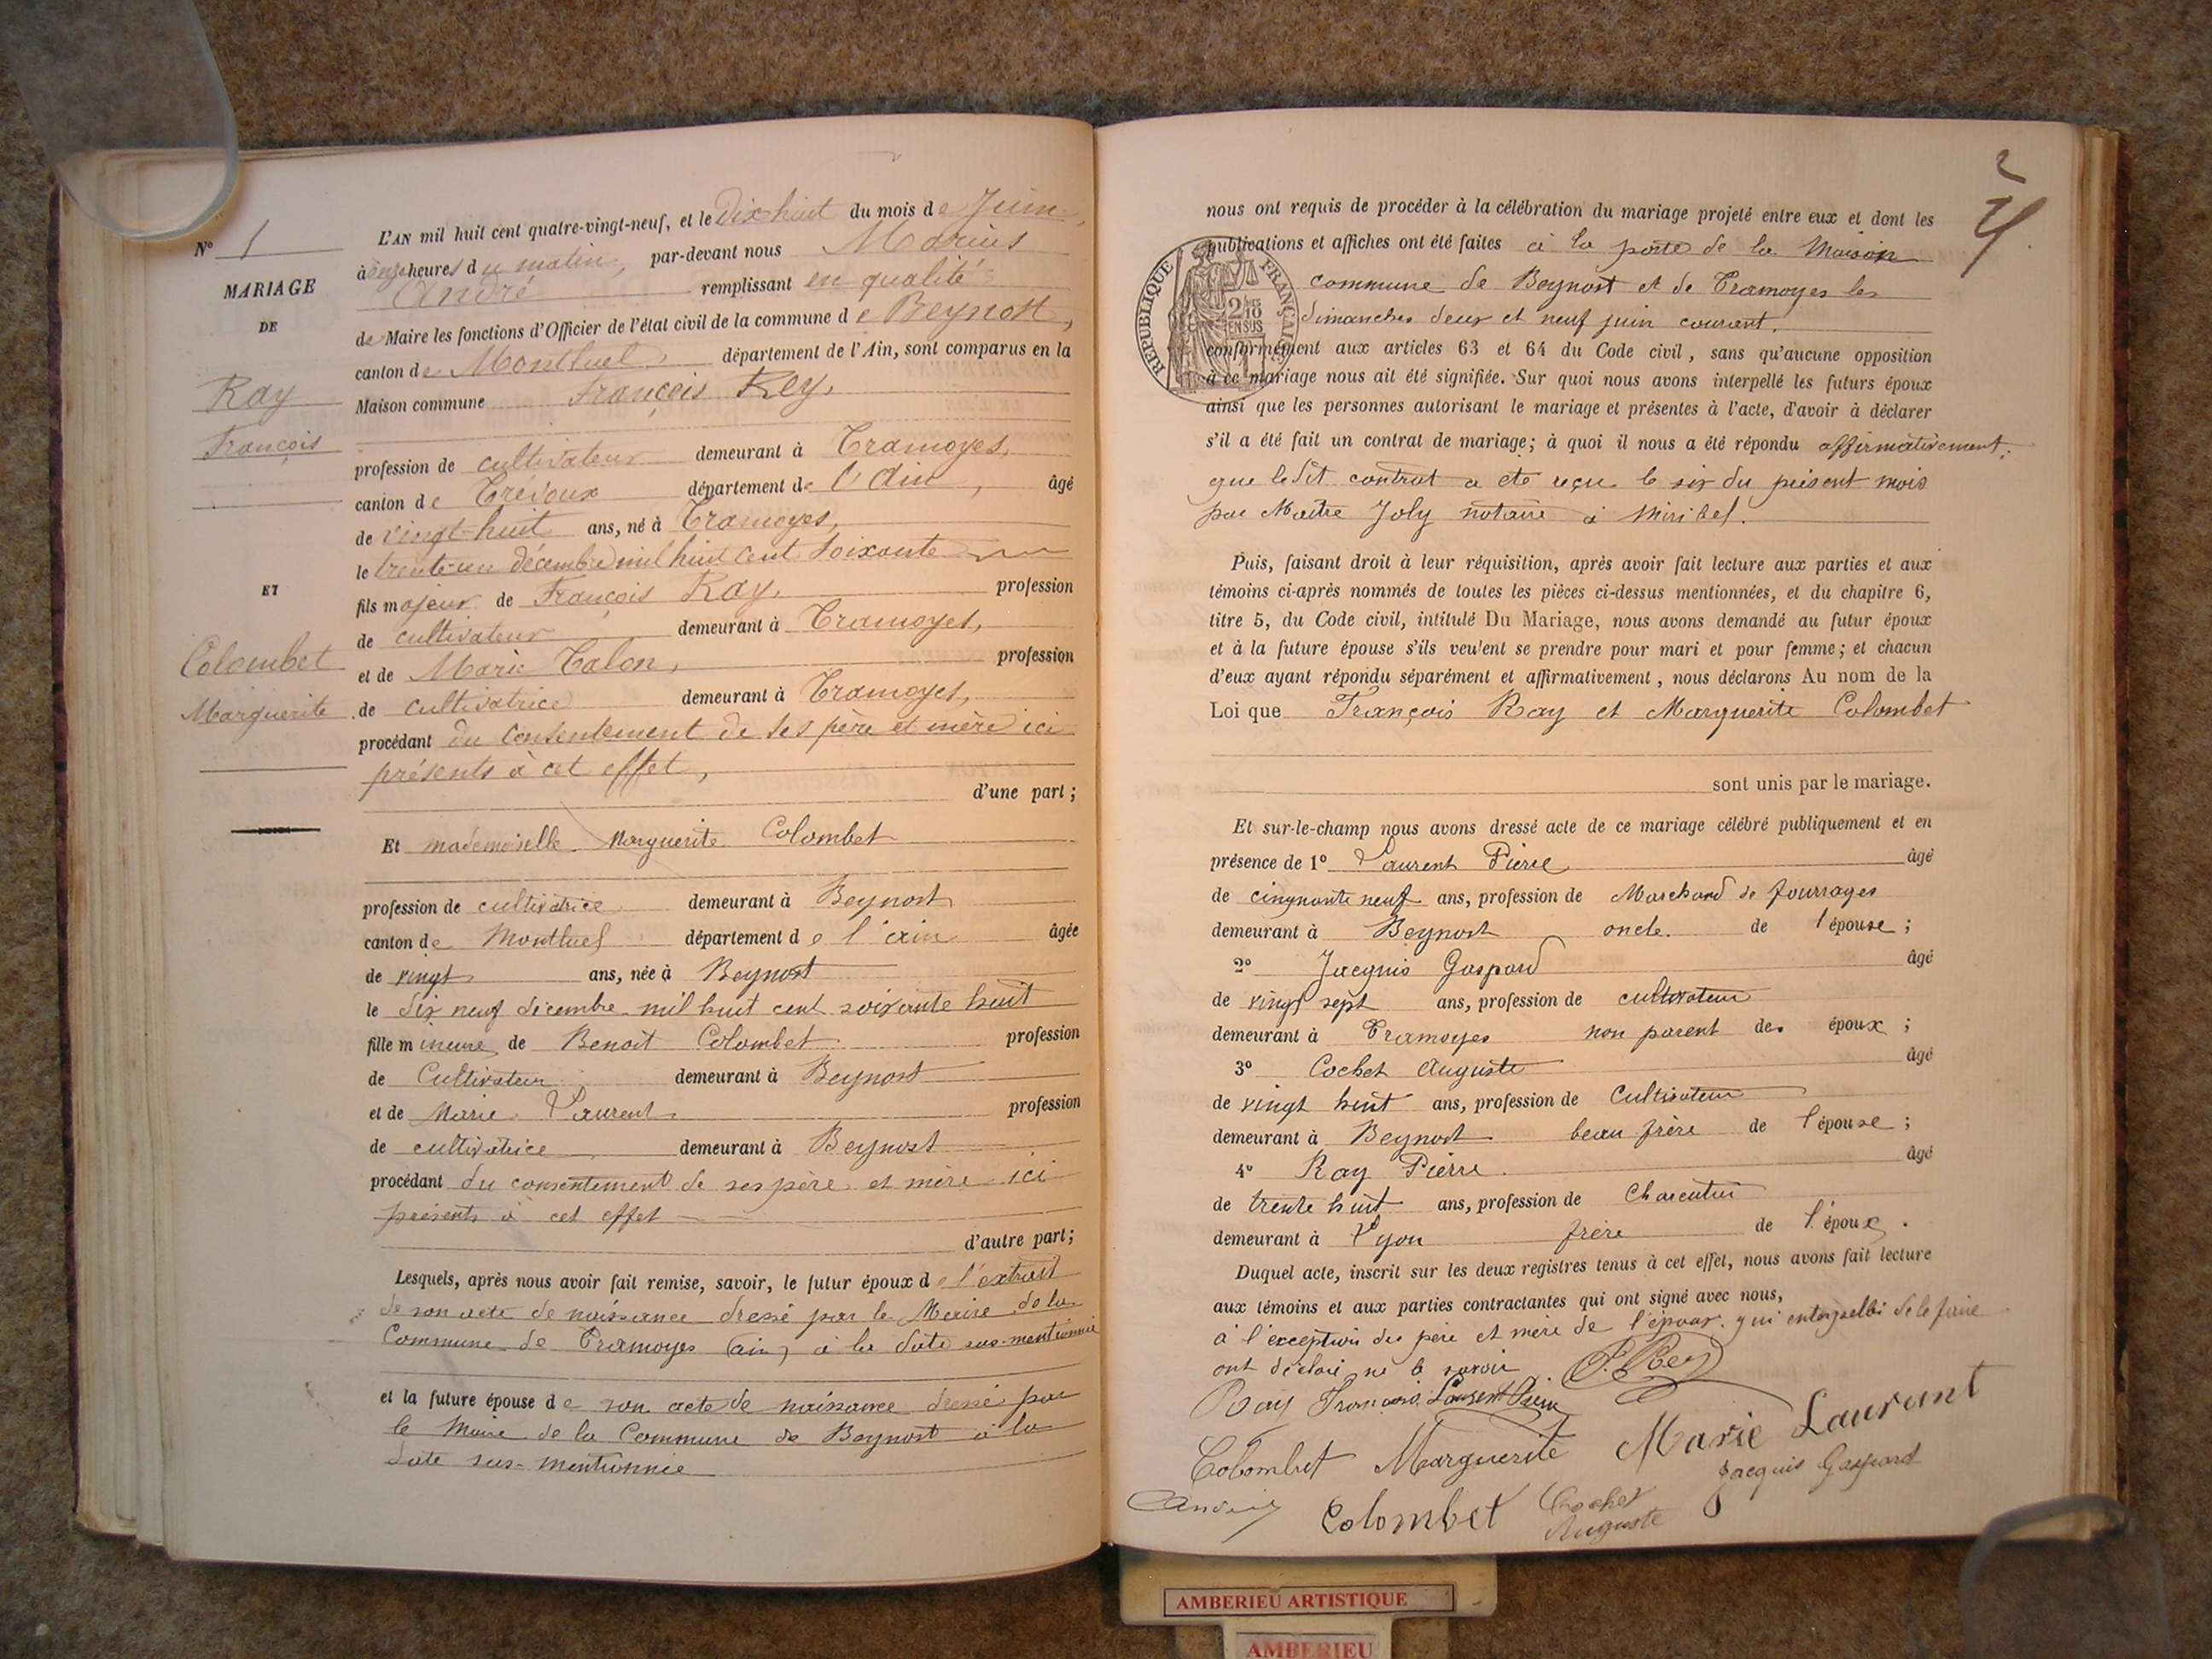 N° 1
MARIAGE
DE
Ray
François
ET
Colombet
Marguerite
L'AN mil huit cent quatre-vingt-neuf, et le Dix huit du mois de Juin,
à onze heures du matin, par-devant nous Marius
André remplissant en qualité
de Maire les fonctions d'Officier de l'état civil de la commune de Beynost,
canton de Montluel, département de l'Ain, sont comparus en la
Maison commune François Rey,
profession de cultivateur demeurant à Tramoyes,
canton de Trévoux département de l'Ain, âgé
de vingt-huit ans, né à Tramoyes,
le trente-un décembre mil huit cent soixante
fils majeur de François Ray, profession
de cultivateur demeurant à Tramoyes,
et de Marie Talon, profession
de cultivatrice demeurant à Tramoyes,
procédant du consentement de ses père et mère ici
présents à cet effet,
d'une part;
Et mademoiselle Marguerite Colombet
profession de cultivatrice demeurant à Beynost
canton de Montluel département de l'ain âgée
de vingt ans, née à Beynost
le dix neuf décembre mil huit cent soixante huit
fille mineure de Benoit Colombet profession
de Cultivateur demeurant à Beynost
et de Marie Laurent profession
de cultivatrice demeurant à Beynost
procédant du consentement de ses père et mère ici
présents à cet effet
d'autre part;
Lesquels, après nous avoir fait remise, savoir, le futur époux de l'extrait
de son acte de naissance dressé par le Maire de la
Commune de Tramoyes (ain) à la date sus-mentionnée
et la future épouse de son acte de naissance dressé par
le Maire de la Commune de Beynost à la
date sus-mentionnée
nous ont requis de procéder à la célébration du mariage projeté entre eux et dont les
publications et affiches ont été faites à la porte de la Maison
commune de Beynost et de Tramoyes les
dimanches deux et neuf juin courant.
RÉPUBLIQUE FRANÇAISE
2/10 EN SUS
conformément aux articles 63 et 64 du Code civil, sans qu'aucune opposition
à ce mariage nous ait été signifiée. Sur quoi nous avons interpellé les futurs époux
ainsi que les personnes autorisant le mariage et présentes à l'acte, d'avoir à déclarer
s'il a été fait un contrat de mariage; à quoi il nous a été répondu affirmativement,
que le dit contrat a été reçu le six du présent mois
par Maître Joly notaire à Miribel.
Puis, faisant droit à leur réquisition, après avoir fait lecture aux parties et aux
témoins ci-après nommés de toutes les pièces ci-dessus mentionnées, et du chapitre 6,
titre 5, du Code civil, intitulé Du Mariage, nous avons demandé au futur époux
et à la future épouse s'ils veulent se prendre pour mari et pour femme; et chacun
d'eux ayant répondu séparément et affirmativement, nous déclarons Au nom de la
Loi que François Ray et Marguerite Colombet
sont unis par le mariage.
Et sur-le-champ nous avons dressé acte de ce mariage célébré publiquement et en
présence de 1° Laurent Pierre âgé
de cinquante neuf ans, profession de Marchand de fourrages
demeurant à Beynost oncle de l'épouse;
2° Jacquis Gaspard âgé
de vingt sept ans, profession de cultivateur
demeurant à Tramoyes non parent des époux;
3° Cochet Auguste âgé
de vingt huit ans, profession de Cultivateur
demeurant à Beynost beau frère de l'épouse;
4° Ray Pierre âgé
de trente huit ans, profession de Charcutier
demeurant à Lyon frère de l'époux.
Duquel acte, inscrit sur les deux registres tenus à cet effet, nous avons fait lecture
aux témoins et aux parties contractantes qui ont signé avec nous,
à l'exception des père et mère de l'époux qui de le faire
ont déclaré ne le savoir
Ray François Laurent Pierre P. Rey
Colombet Marguerite Marie Laurent
Jacquis Gaspard
André Colombet Cochet
Auguste
AMBERIEU ARTISTIQUE
AMBERIEU